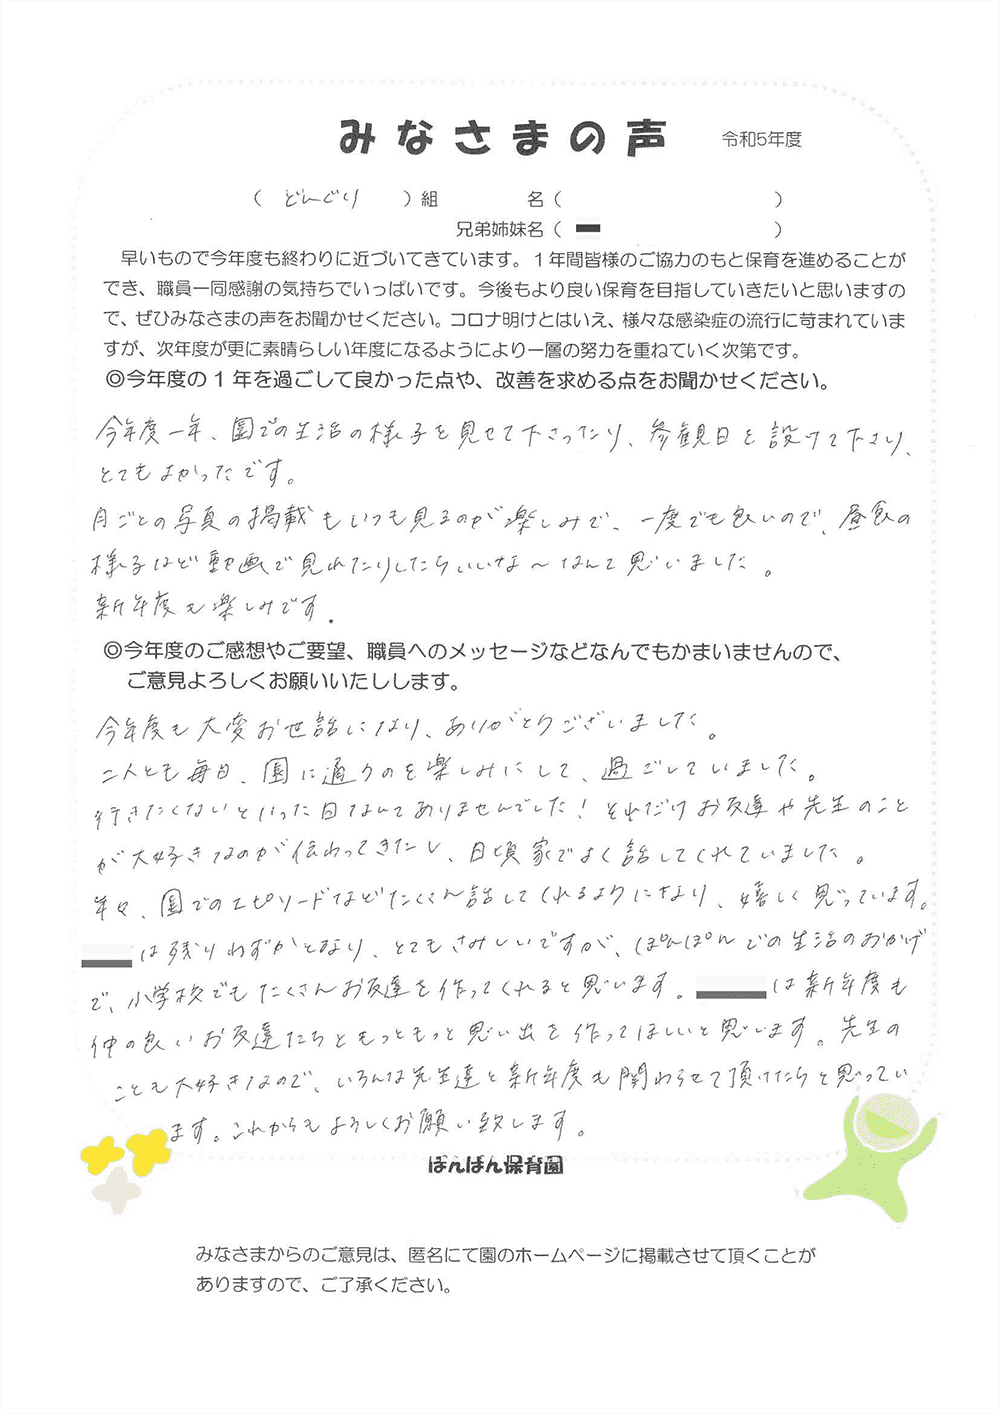 みなさまの声 令和5年度
( どんぐり )組 名( )
兄弟姉妹名( )
早いもので今年度も終わりに近づいてきています。1年間皆様のご協力のもと保育を進めることが
でき、職員一同感謝の気持ちでいっぱいです。今後もより良い保育を目指していきたいと思いますの
で、ぜひみなさまの声をお聞かせください。コロナ明けとはいえ、様々な感染症の流行に苛まれていま
すが、次年度が更に素晴らしい年度になるようにより一層の努力を重ねていく次第です。
◎今年度の1年を過ごして良かった点や、改善を求める点をお聞かせください。
今年度一年、園での生活の様子を見せて下さったり、参観日を設けて下さり、
とてもよかったです。
月ごとの写真の掲載もいつも見るのが楽しみで、一度でも良いので、昼食の
様子など動画で見れたりしたらいいな〜なんて思いました。
新年度も楽しみです。
◎今年度のご感想やご要望、職員へのメッセージなどなんでもかまいませんので、
ご意見よろしくお願いいたしします。
今年度も大変お世話になり、ありがとうございました。
二人とも毎日、園に通うのを楽しみにして、過ごしていました。
行きたくないといった日なんてありませんでした!それだけお友達や先生のこと
が大好きなのが伝わってきたし、日頃家でよく話してくれていました。
年々、園でのエピソードなどたくさん話してくれるようになり、嬉しく思っています。
は残りわずかとなり、とてもさみしいですが、ぽんぽんでの生活のおかげ
で、小学校でもたくさんお友達を作ってくれると思います。 は新年度も
仲の良いお友達たちともっともっと思い出を作ってほしいと思います。先生の
ことも大好きなので、いろんな先生達と新年度も関わらせて頂けたらと思ってい
ます。これからもよろしくお願い致します。
ぽんぽん保育園
みなさまからのご意見は、匿名にて園のホームページに掲載させて頂くことが
ありますので、ご了承ください。